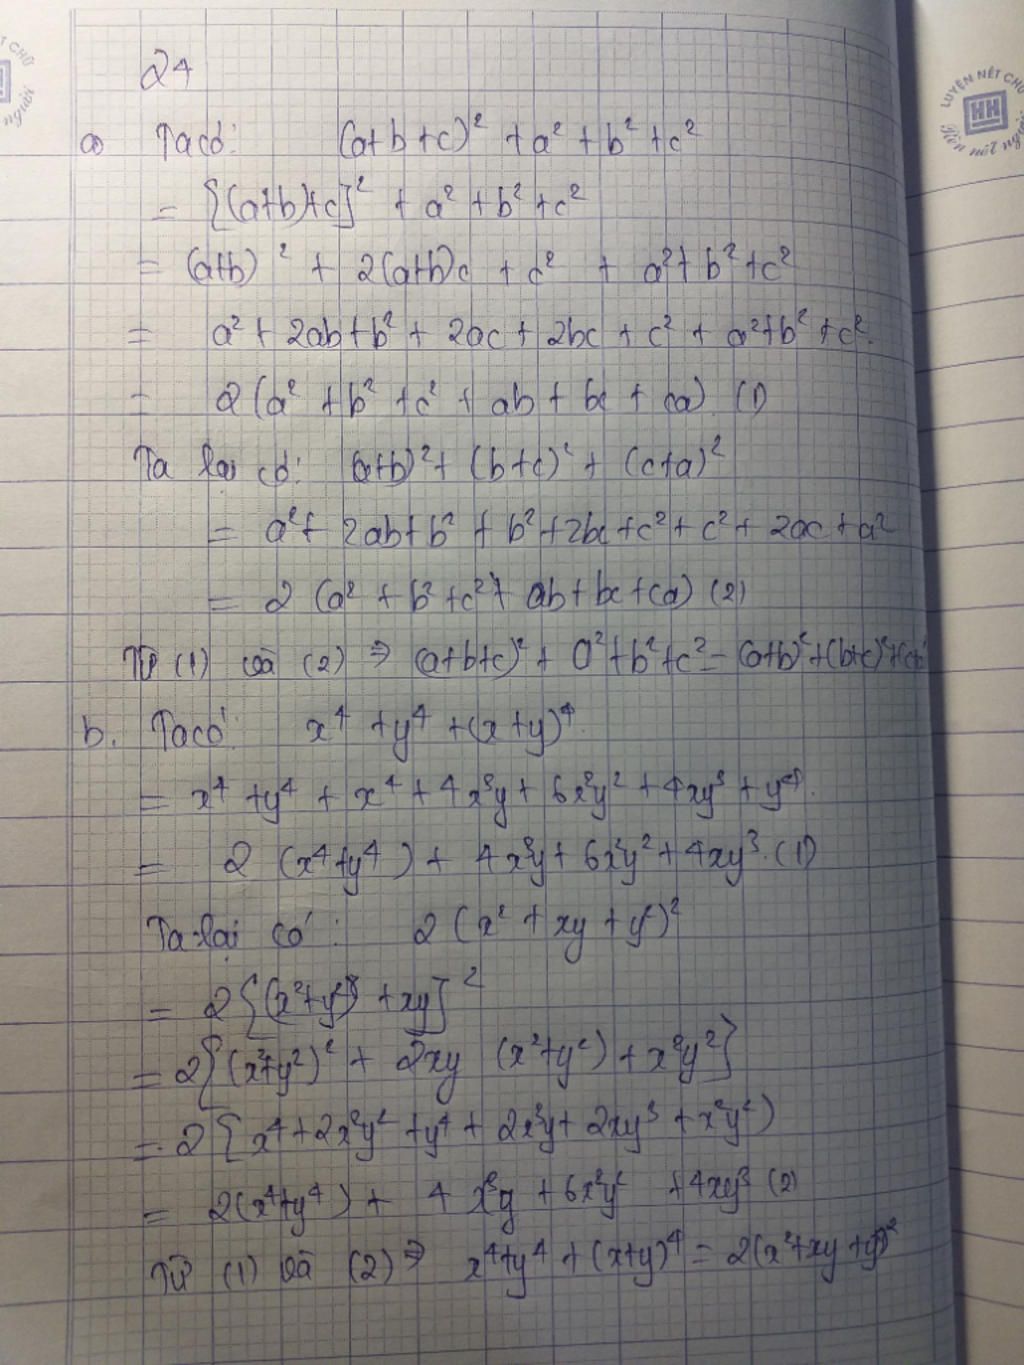 24
a) Ta có: (a+b+c)² + a² + b² + c²
= [(a+b)+c]² + a² + b² + c²
= (a+b)² + 2(a+b)c + c² + a² + b² + c²
= a² + 2ab + b² + 2ac + 2bc + c² + a² + b² + c².
= 2 (a² + b² + c² + ab + bc + ca) (1)
Ta lại có: (a+b)² + (b+c)² + (c+a)²
= a² + 2ab + b² + b² + 2bc + c² + c² + 2ac + a²
= 2 (a² + b² + c² + ab + bc + ca) (2)
Từ (1) và (2) ⇒ (a+b+c)² + a² + b² + c² = (a+b)² + (b+c)² + (c+a)²
b. Ta có: x⁴ + y⁴ + (x+y)⁴.
= x⁴ + y⁴ + x⁴ + 4x³y + 6x²y² + 4xy³ + y⁴.
= 2 (x⁴+y⁴) + 4x³y + 6x²y² + 4xy³. (1)
Ta lại có: 2 (x² + xy + y²)²
= 2 [(x²+y²) + xy]²
= 2[(x²+y²)² + 2xy (x²+y²) + x²y²]
= 2 [x⁴ + 2x²y² + y⁴ + 2x³y + 2xy³ + x²y²)
= 2(x⁴+y⁴) + 4 x³y + 6x²y² + 4xy³ (2)
Từ (1) và (2) ⇒ x⁴+y⁴ + (x+y)⁴ = 2(x²+xy+y²)²
LUYỆN NÉT CHỮ
HH